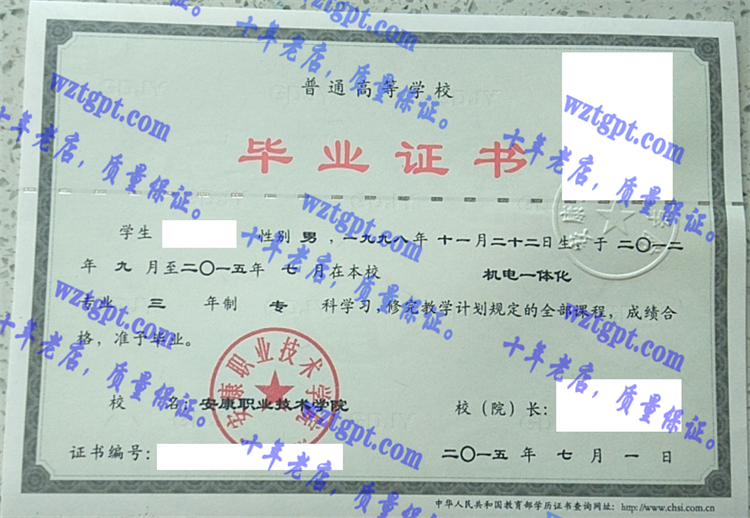 普通高等学校
毕业证书
学生 性别 男，一九九八年 十一月二十二日生，于 二〇一二
年 九 月至二〇一五年 七 月在本校 机电一体化
专业 三 年制 专 科学习，修完教学计划规定的全部课程，成绩合
格，准予毕业。
校 名：安康职业技术学院
校（院）长：
证书编号：
二〇一五年 七 月 一 日
中华人民共和国教育部学历证书查询网址：http://www.chsi.com.cn
安康职业技术学院
wztgpt.com
十年老店，质量保证。
wztgpt.com
十年老店，质量保证。
wztgpt.com
十年老店，质量保证。
wztgpt.com
十年老店，质量保证。
wztgpt.com
十年老店，质量保证。
wztgpt.com
十年老店，质量保证。
wztgpt.com
十年老店，质量保证。
十年老店，质量保证。